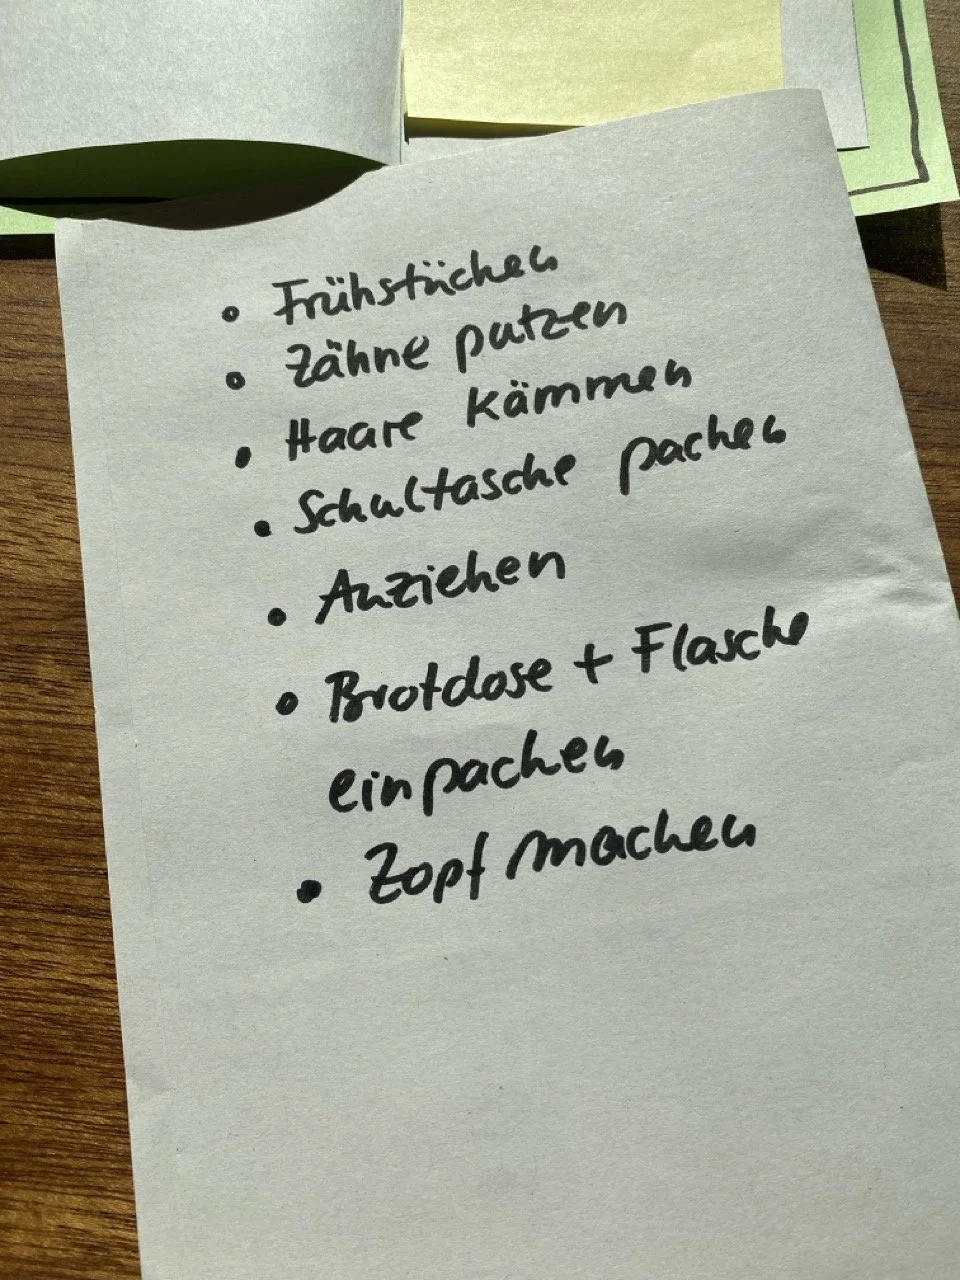 • Frühstücken
• Zähne putzen
• Haare kämmen
• Schultasche packen
• Anziehen
• Brotdose + Flasche
einpacken
• Zopf machen